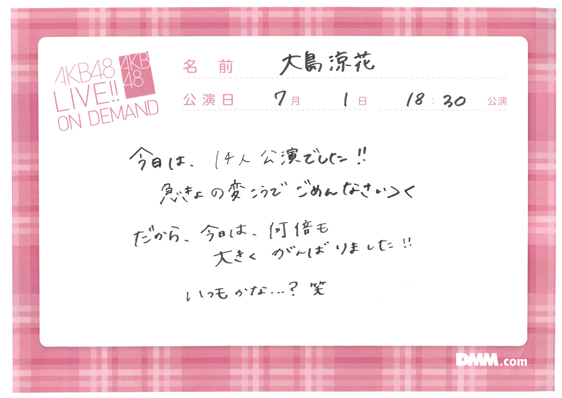 AKB48
LIVE!!
ON DEMAND
AKB
48
名前 大島涼花
公演日 7月 1日 18:30 公演
今日は、14人公演でした!!
急きょの変こうで ごめんなさいっ
だから、今日は、何倍も
大きく がんばりました!!
いつもかな...? 笑
DMM.com